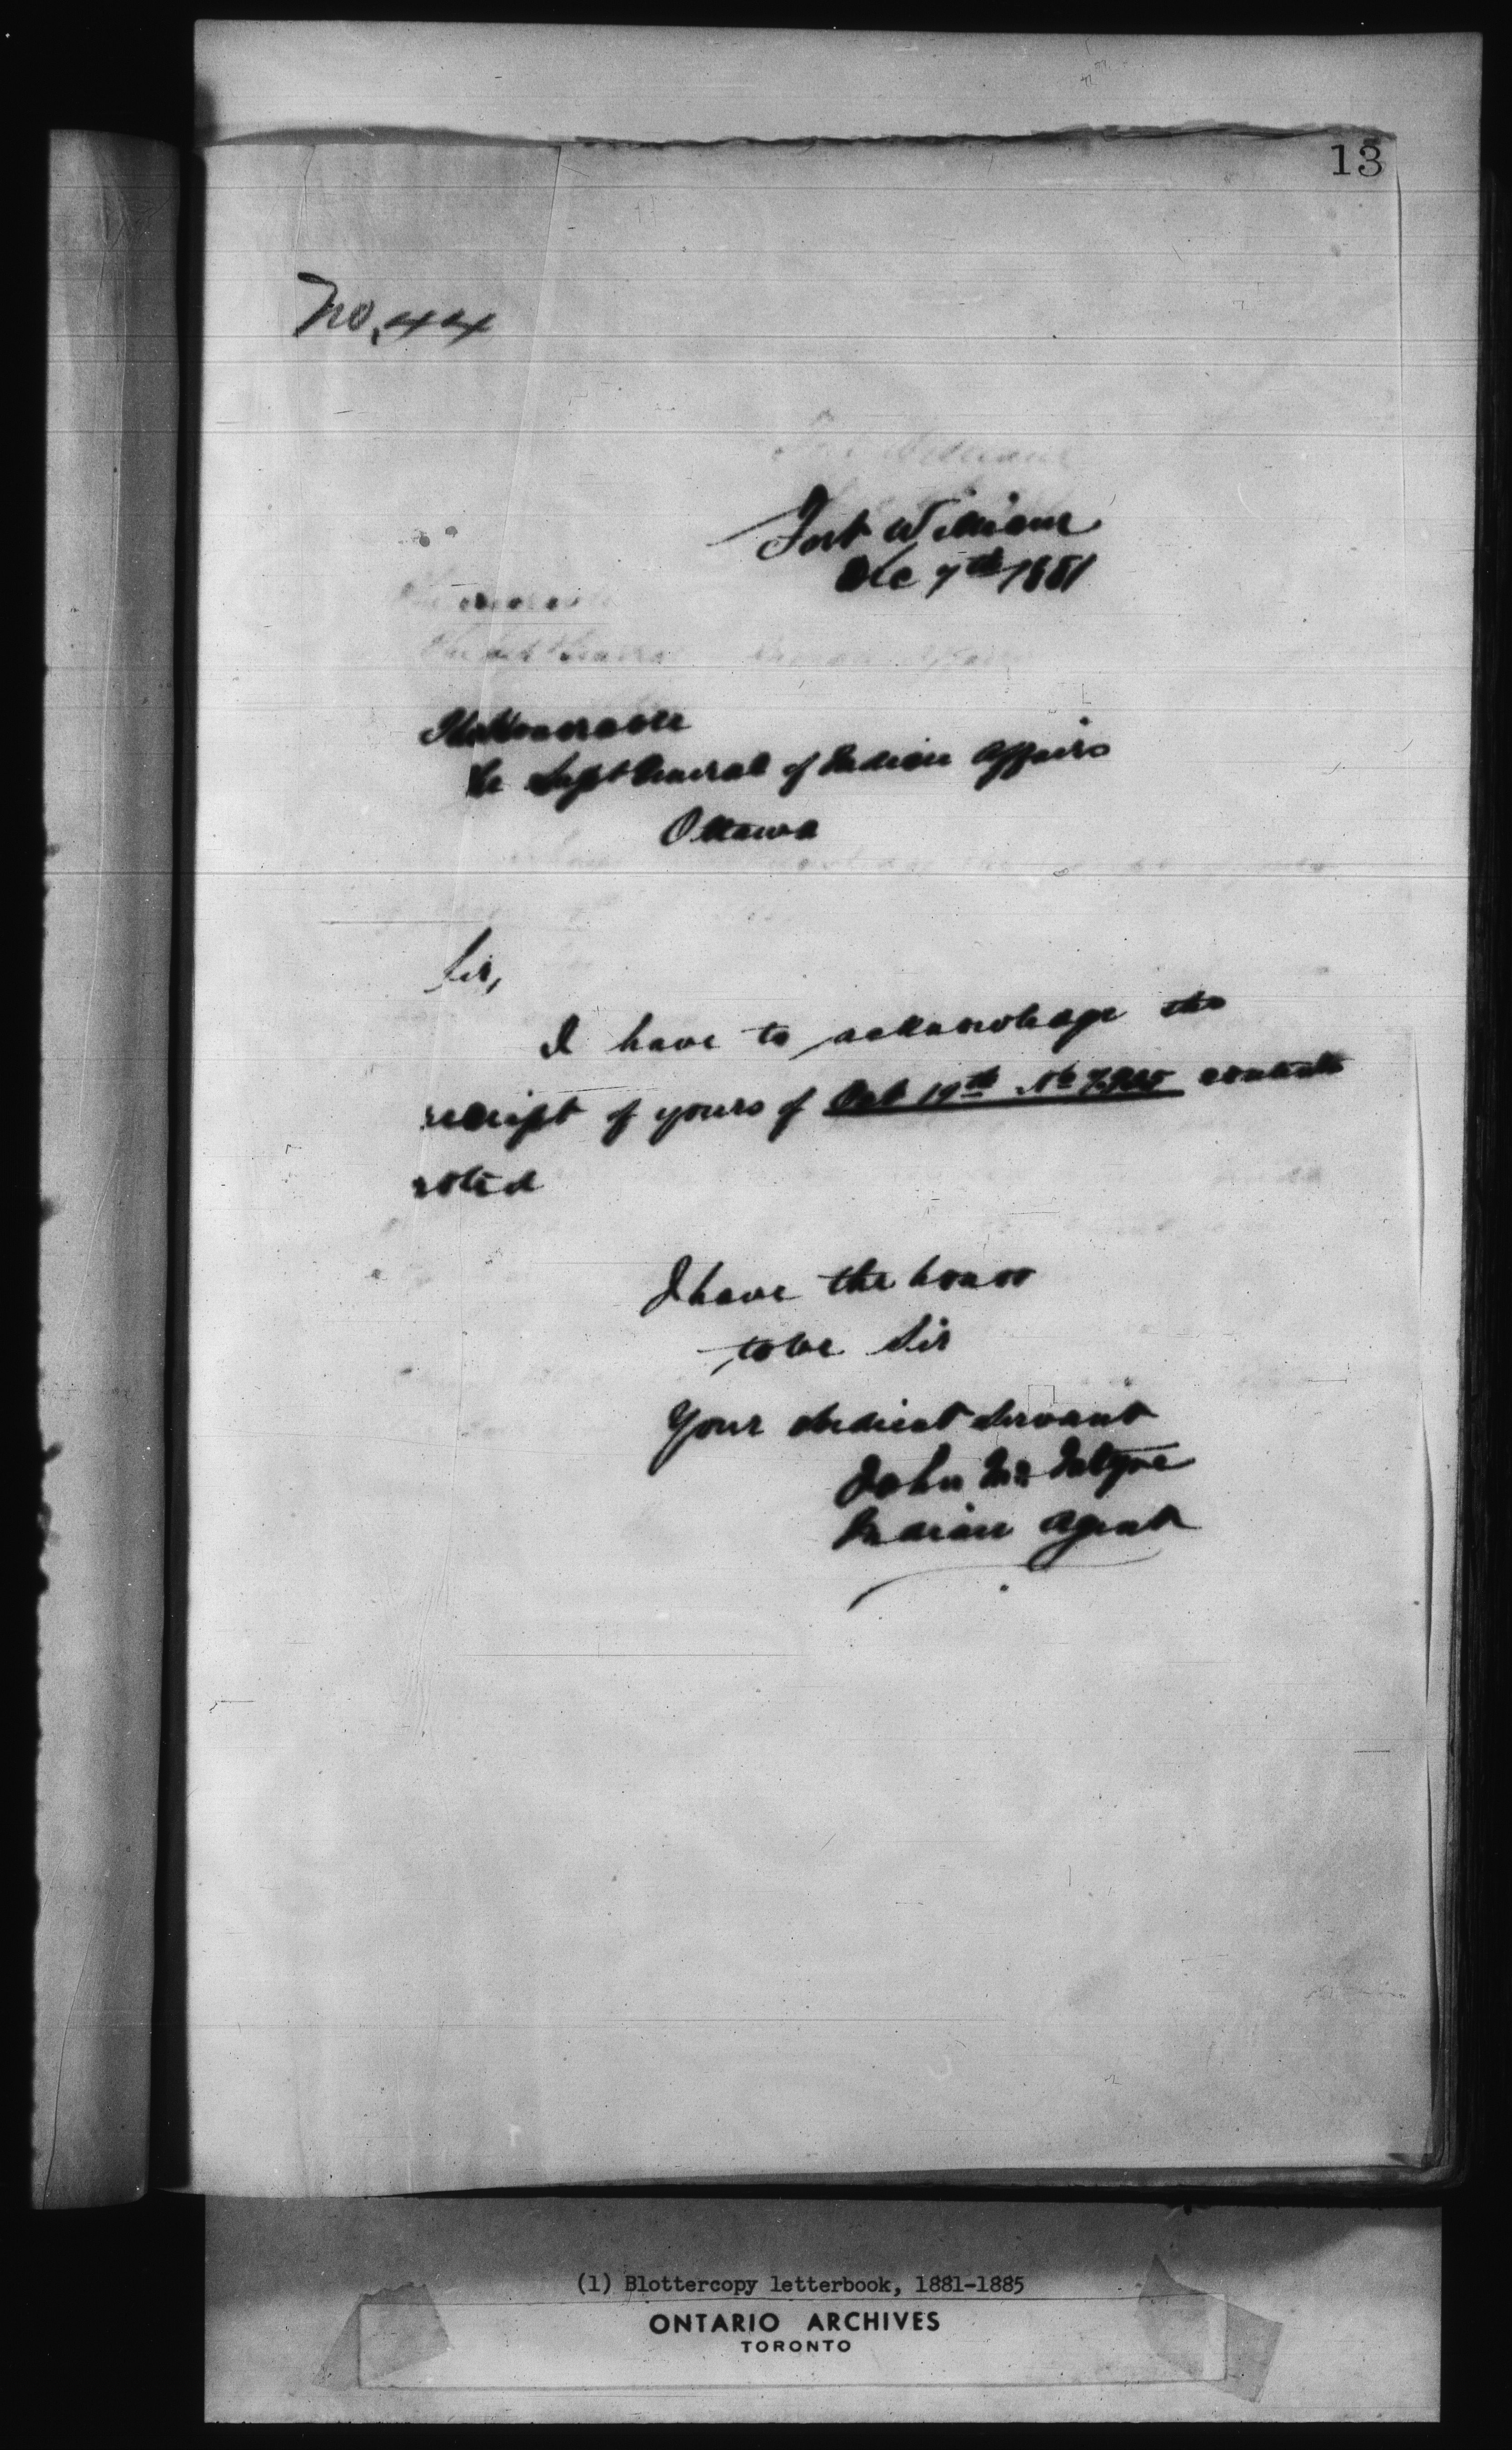 13
No. 44
Fort William
Dec 7th 1881
The Honorable
The Supt General of Indian Affairs
Ottawa
Sir,
I have to acknowledge the
receipt of yours of Oct 19th No contents
noted
I have the honor
to be Sir
Your obedient Servant
John McIntyre
Indian Agent
(1) Blottercopy letterbook, 1881-1885
ONTARIO ARCHIVES
TORONTO